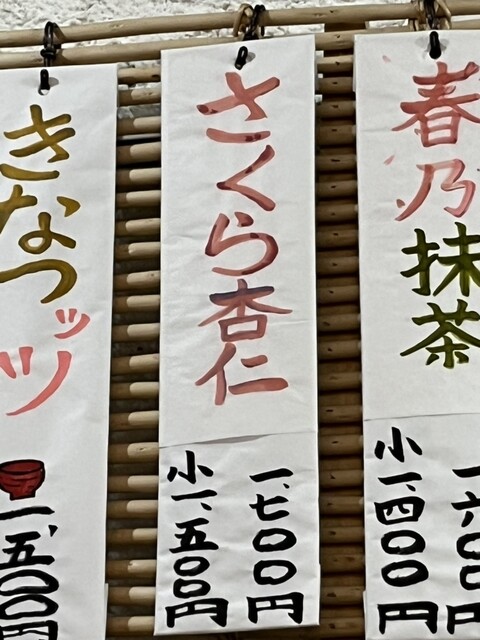 春乃抹茶
一六〇〇円
小一、四〇〇円
さくら杏仁
一、七〇〇円
小一、五〇〇円
きなつッツ
一、五〇〇円